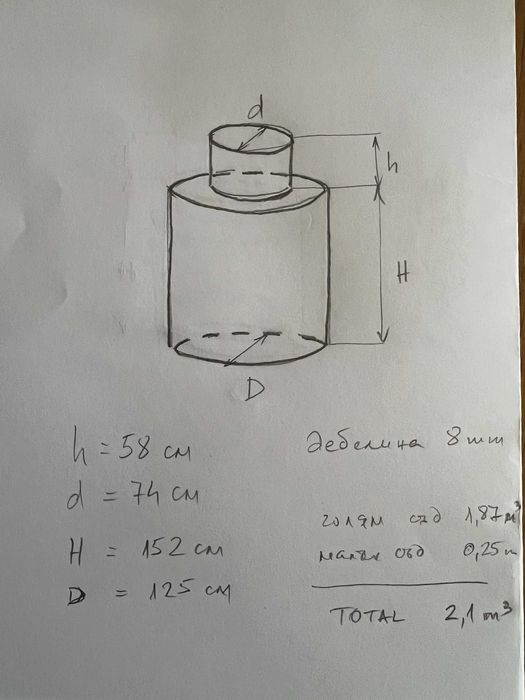 d
h
H
D
h = 58 см
d = 74 см
H = 152 см
D = 125 см
дебелина 8 mm
голям съд 1,87 m³
малък съд 0,25 m
TOTAL 2,1 m³